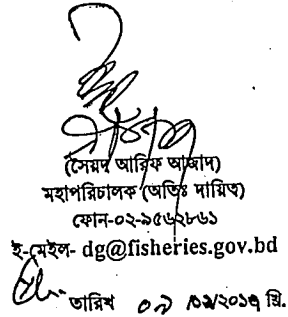 (সৈয়দ আরিফ আজাদ)
মহাপরিচালক (অতিঃ দায়িত্ব)
ফোন-০২-৯৫৬২৮৬১
ই-মেইল- dg@fisheries.gov.bd
তারিখ ০৯ খ্রি.